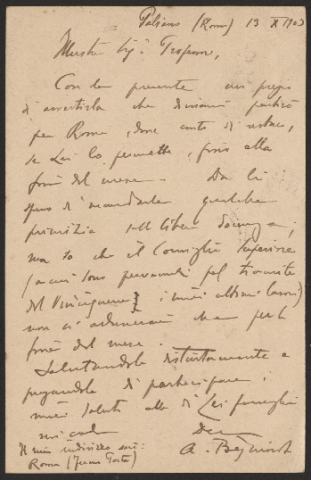 Paliano (Roma) 13 X 1903
Illustre Sig. Professore,
Con la presente mi pregio
di avvertirla che domani partirò
per Roma, dove conto di restare,
se Lei lo permette, fino alla
fine del mese. Da lì
spero di mandarle qualche
primizia sulla libera docenza;
ma so che il Consiglio Superiore
(a cui sono pervenuti pel tramite
del i miei ultimi lavori)
non si adunerà che per la
fine del mese.
Salutandola distintamente e
pregandola di partecipare i
miei saluti alla di Lei famiglia
mi creda Dev
A. Béguinot
Il mio indirizzo sarà:
Roma (Ferma Posta)